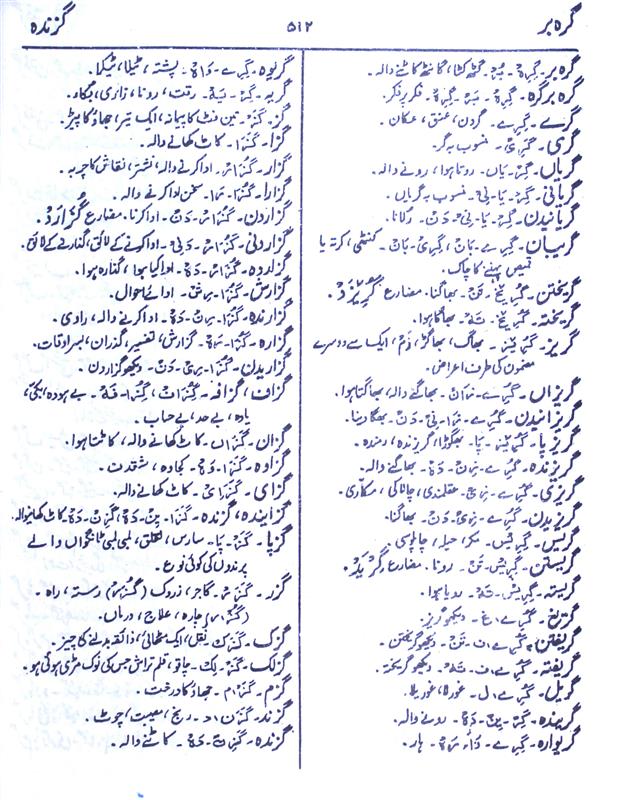 گرہ بر
۵۱۲
گزندہ
گرہ بر۔ گِرِہ۔ بُر۔ گٹھ کٹا، گانٹھ کاٹنے والہ۔
گرہ برگرہ۔ گِرِہ۔ بَر۔ گِرِہ۔ فکر پر فکر۔
گرے۔ گِرے۔ گردن، عنق،
گری۔ گَرِی۔ منسوب بہ گر۔
گریاں۔ گِر۔ یَاں۔ روتا ہوا، رونے والہ۔
گریانی۔ گِر۔ یَا۔ نِی۔ منسوب بہ گریاں۔
گریانیدن۔ گِر۔ یَا۔ نِی۔ دَن۔ رُلانا۔
گریبان۔ گِرے۔ بَان، گِرِی۔ بَان۔ کنٹھی، کرتہ یا
قمیص پہننے کا چاک۔
گریختن۔ گُرِیخ۔ تَن۔ بھاگنا۔ مضارع گُرِیزَد۔
گریختہ۔ گُرِیخ۔ تَہ۔ بھاگا ہوا۔
گریز۔ گُرِیز۔ بھاگ، بھاگڑ، رَم، ایک سے دوسرے
مضمون کی طرف اعراض۔
گریزاں۔ گُرے۔ زَاں۔ بھاگنے والہ، بھاگتا ہوا۔
گریزانیدن۔ گُرے۔ زَا۔ نِی۔ دَن۔ بھگا دینا۔
گریزپا۔ گُرِیز۔ پَا۔ بھگوڑا، گریزندہ، رمندہ۔
گریزندہ۔ گُرے۔ زِن۔ دَہ۔ بھاگنے والہ۔
گریزی۔ گُرے۔ زِی۔ عقلمندی، چالاکی، مکاری۔
گریزیدن۔ گُرے۔ زِی۔ دَن۔ بھاگنا۔
گریس۔ گُرِیس۔ مکر، حیلہ، چاپلوسی۔
گریستن۔ گِرِیس۔ تَن۔ رونا۔ مضارع گِرِیَد۔
گریستہ۔ گِرِیس۔ تَہ۔ رویا ہوا۔
گریغ۔ گُرے، غ۔ دیکھو گریز۔
گریفتن۔ گُرے، ف۔ تَن۔ دیکھو گریختن۔
گریفتہ۔ گُرے، ف۔ تَہ۔ دیکھو گریختہ۔
گریل۔ گُرے، ل۔
گریندہ۔ گِر۔ یِن۔ دَہ۔ رونے والہ۔
گریوارہ۔ گِرے۔ وَا۔ رَہ۔ ہار۔
گریوہ۔ گِرے۔ وَہ۔ پشتہ، ٹیلا، ٹیکلا۔
گریہ۔ گِر۔ یَہ۔ رقت، رونا، زاری،
گز۔ گَز۔ تین فٹ کا پیمانہ، ایک تیر، جھاؤ کا پیڑ۔
گزا۔ گَزَا۔ کاٹ کھانے والہ۔
گزار۔ گُزَار۔ ادا کرنے والہ، نشتر، نقاش کا چربہ۔
گزارا۔ گُزَا۔ رَا۔ سخن ادا کرنے والہ۔
گزاردن۔ گُزَار۔ دَن۔ ادا کرنا۔ مضارع گُزَارَد۔
گزاردنی۔ گُزَار۔ دَنِی۔ ادا کرنے کے لائق، گذارنے کے لائق۔
گزاردہ۔ گُزَار۔ دَہ۔ ادا کیا ہوا، گذارہ ہوا۔
گزارش۔ گُزَا۔ رِش۔ ادائے احوال۔
گزارندہ۔ گُزَا۔ رِن۔ دَہ۔ ادا کرنے والہ، راوی۔
گزارہ۔ گُزَا۔ رَہ۔ گزارش، تفسیر، گذران، بسر اوقات۔
گزاریدن۔ گُزَا۔ رِی۔ دَن۔ دیکھو گزاردن۔
گزاف، گزافہ۔ گِزَاف، گِزَا۔ فَہ۔ بے ہودہ،
یاوہ، بے حد، بے حساب۔
گزان۔ گَزَاں۔ کاٹ کھانے والہ، کاٹتا ہوا۔
گزاوہ۔ گَزَا۔ وَہ۔ کجاوہ، شغدف۔
گزای۔ گَزَای۔ کاٹ کھانے والہ۔
گزایندہ، گزندہ۔ گَزَا۔ یِن۔ دَہ، گَزِن۔ دَہ۔ کاٹ کھانیوالہ۔
گزپا۔ گَز۔ پَا۔ سارس، لقلق، لمبی لمبی ٹانگوں والے
پرندوں کی کوئی نوع۔
گزر۔ گَزَر۔ گاجر، زروک (گُذَر) رستہ، راہ۔
(گُزُر) چارہ، علاج، درماں۔
گزک۔ گَزَک۔ نقل، ایک مٹھائی، ذائقہ بدلنے کا چیز۔
گزلک۔ گَز۔ لِک۔ چاقو، قلم تراش جس کی نوک مڑی ہوئی ہو۔
گزم۔ گَز، م۔ جھاؤ کا درخت۔
گزند۔ گَزَن، د۔ رنج، مصیبت، چوٹ۔
گزندہ۔ گَزِن۔ دَہ۔ کاٹنے والہ۔